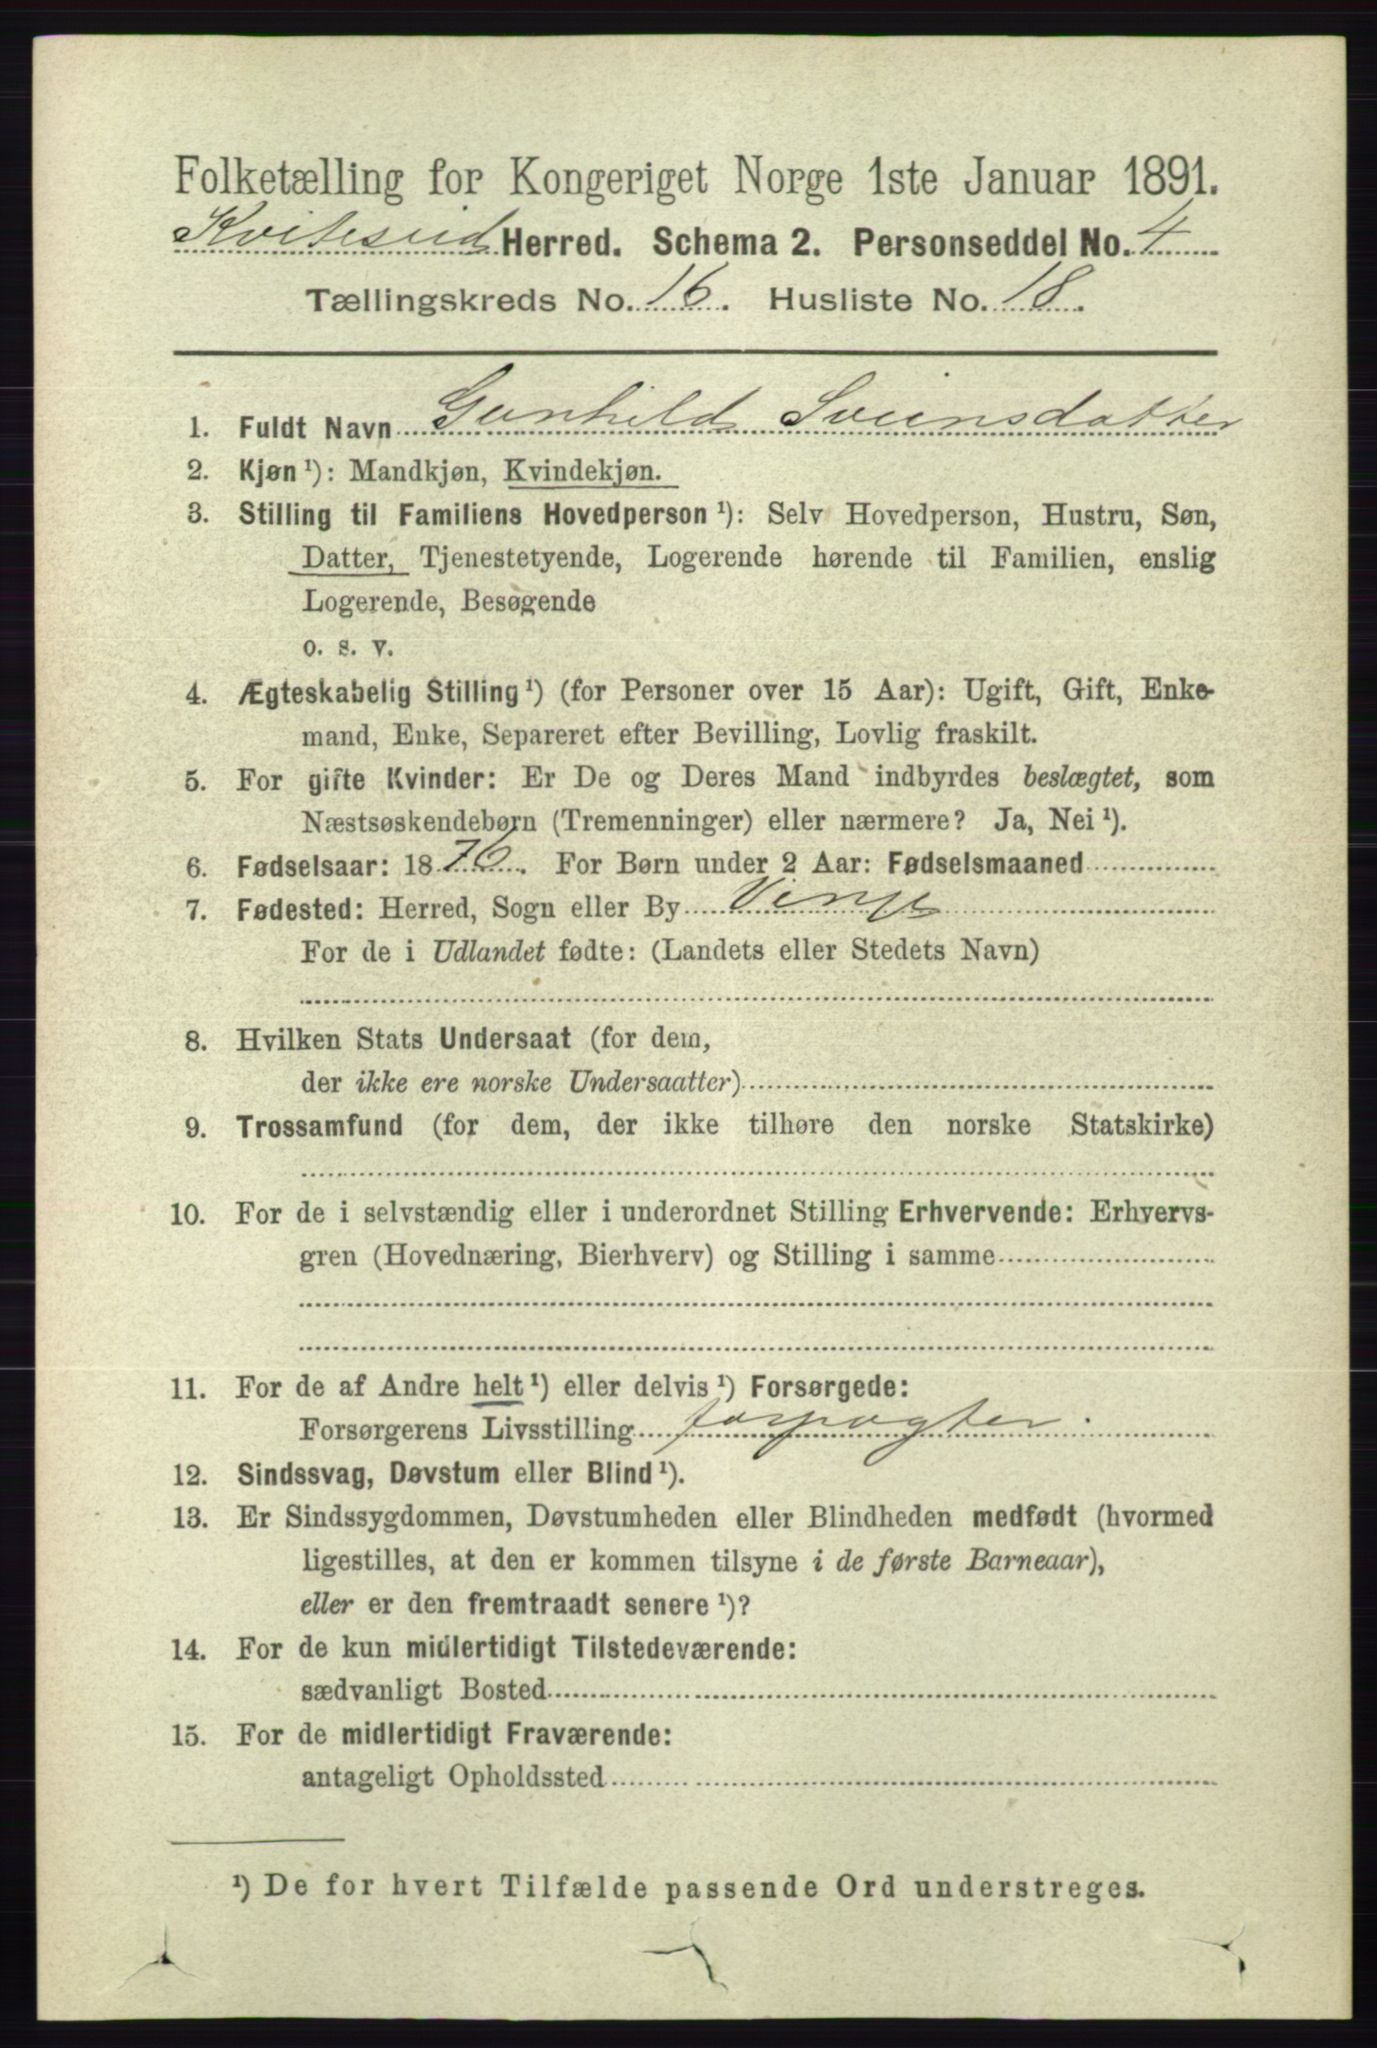 Folketælling for Kongeriget Norge 1ste Januar 1891.
Kviteseid Herred. Schema 2. Personseddel No. 4
Tællingskreds No. 16. Husliste No. 18.
1. Fuldt Navn Gunhild Sveinsdatter
2. Kjøn ¹): Mandkjøn, Kvindekjøn.
3. Stilling til Familiens Hovedperson ¹): Selv Hovedperson, Hustru, Søn,
Datter, Tjenestetyende, Logerende hørende til Familien, enslig
Logerende, Besøgende
o. s. v.
4. Ægteskabelig Stilling ¹) (for Personer over 15 Aar): Ugift, Gift, Enke-
mand, Enke, Separeret efter Bevilling, Lovlig fraskilt.
5. For gifte Kvinder: Er De og Deres Mand indbyrdes beslægtet, som
Næstsøskendebørn (Tremenninger) eller nærmere? Ja, Nei ¹).
6. Fødselsaar: 1876. For Børn under 2 Aar: Fødselsmaaned
7. Fødested: Herred, Sogn eller By Vinje
For de i Udlandet fødte: (Landets eller Stedets Navn)
8. Hvilken Stats Undersaat (for dem,
der ikke ere norske Undersaatter)
9. Trossamfund (for dem, der ikke tilhøre den norske Statskirke)
10. For de i selvstændig eller i underordnet Stilling Erhvervende: Erhvervs-
gren (Hovednæring, Bierhverv) og Stilling i samme
11. For de af Andre helt ¹) eller delvis ¹) Forsørgede:
Forsørgerens Livsstilling forpagter.
12. Sindssvag, Døvstum eller Blind ¹).
13. Er Sindssygdommen, Døvstumheden eller Blindheden medfødt (hvormed
ligestilles, at den er kommen tilsyne i de første Barneaar),
eller er den fremtraadt senere ¹)?
14. For de kun midlertidigt Tilstedeværende:
sædvanligt Bosted
15. For de midlertidigt Fraværende:
antageligt Opholdssted
¹) De for hvert Tilfælde passende Ord understreges.